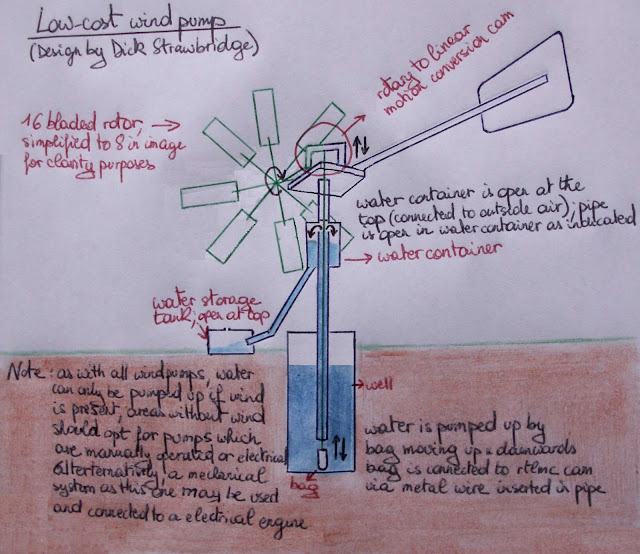 Low-cost wind pump
(Design by Dick Strawbridge)
rotary to linear
motion conversion cam
16 bladed rotor, →
simplified to 8 in image
for clarity purposes
water container is open at the
top (connected to outside air); pipe
is open in water container as indicated
→ water container
water storage
tank; open at top
Note: as with all windpumps, water
can only be pumped up if wind
is present, areas without wind
should opt for pumps which
are manually operated or electrical
Alterternatively, a mechanical
system as this one may be used
and connected to a electrical engine
→ well
water is pumped up by
bag moving up & downwards
bag is connected to rtlmc cam
via metal wire inserted in pipe
bag